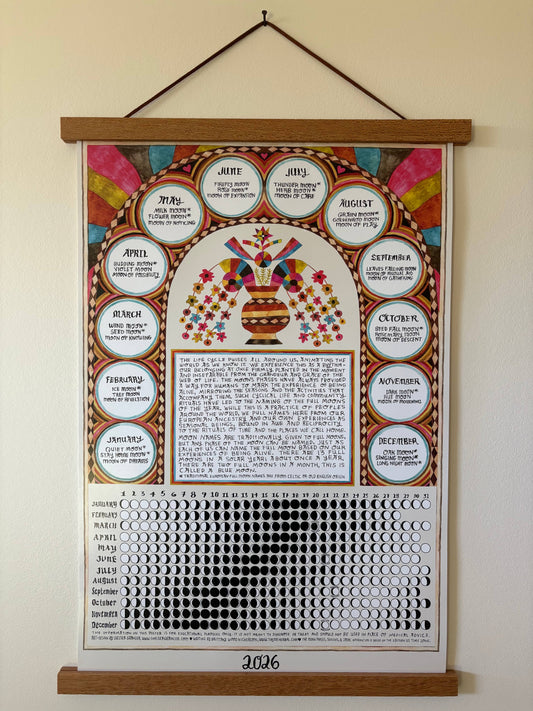 JUNE
FIREFLY MOON
ROSE MOON*
MOON OF EXPANSION
JULY
THUNDER MOON*
HERB MOON*
MOON OF CARE
MAY
MILK MOON*
FLOWER MOON*
MOON OF NOTICING
AUGUST
GRAIN MOON*
MOON OF PLAY
APRIL
BUDDING MOON*
VIOLET MOON
MOON OF POSSIBILITY
SEPTEMBER
LEAVES FALLING MOON
MOON OF GATHERING
MARCH
WIND MOON*
SEED MOON*
MOON OF KNOWING
OCTOBER
SEED FALL MOON*
ROSEMARY MOON
MOON OF DESCENT
FEBRUARY
ICE MOON*
TREE MOON
MOON OF REVELATION
NOVEMBER
DARK MOON*
MOON OF
JANUARY
QUIET MOON*
STAY HOME MOON*
MOON OF DREAMS
DECEMBER
OAK MOON*
SINGING MOON
LONG NIGHT MOON*
THE LIFE CYCLE PULSES ALL AROUND US, ANIMATING THE
WORLD AS WE KNOW IT. WE EXPERIENCE THIS AS A RHYTHM—
OUR BELONGING AT ONCE FIRMLY PLANTED IN THE MOMENT
AND INSEPARABLE FROM THE GRANDEUR AND GRACE OF THE
WEB OF LIFE. THE MOON'S PHASES HAVE ALWAYS PROVIDED
A WAY FOR HUMANS TO MARK THE EXPERIENCE OF BEING
ALIVE, MIRRORING THE SEASONS AND THE ACTIVITIES THAT
ACCOMPANY THEM. SUCH CYCLICAL LIFE AND COMMUNITY
RITUALS HAVE LED TO THE NAMING OF THE FULL MOONS
OF THE YEAR. WHILE THIS IS A PRACTICE OF PEOPLES
AROUND THE WORLD, WE PULL NAMES HERE FROM OUR
EUROPEAN ANCESTRY AND OUR OWN EXPERIENCES AS
SEASONAL BEINGS, BOUND IN AWE AND RECIPROCITY
TO THE RITUALS OF TIME AND THE PLACES WE CALL HOME.
MOON NAMES ARE TRADITIONALLY GIVEN TO FULL MOONS,
BUT ANY PHASE OF THE MOON CAN BE NAMED, JUST AS
EACH OF US CAN NAME THE FULL MOON BASED ON OUR
EXPERIENCES OF BEING ALIVE. THERE ARE 13 FULL
MOONS IN A SOLAR YEAR: ABOUT ONCE A YEAR,
THERE ARE TWO FULL MOONS IN A MONTH, THIS IS
CALLED A BLUE MOON.
* TRADITIONAL EUROPEAN FULL MOON NAMES ARE FROM CELTIC OR OLD ENGLISH ORIGIN
1 2 3 4 5 6 7 8 9 10 11 12 13 14 15 16 17 18 19 20 21 22 23 24 25 26 27 28 29 30 31
JANUARY
FEBRUARY
MARCH
APRIL
MAY
JUNE
JULY
AUGUST
September
October
November
December
THE INFORMATION IN THIS POSTER IS FOR EDUCATIONAL PURPOSES ONLY. IT IS NOT MEANT TO DIAGNOSE OR TREAT AND SHOULD NOT BE USED IN PLACE OF MEDICAL ADVICE.
2026